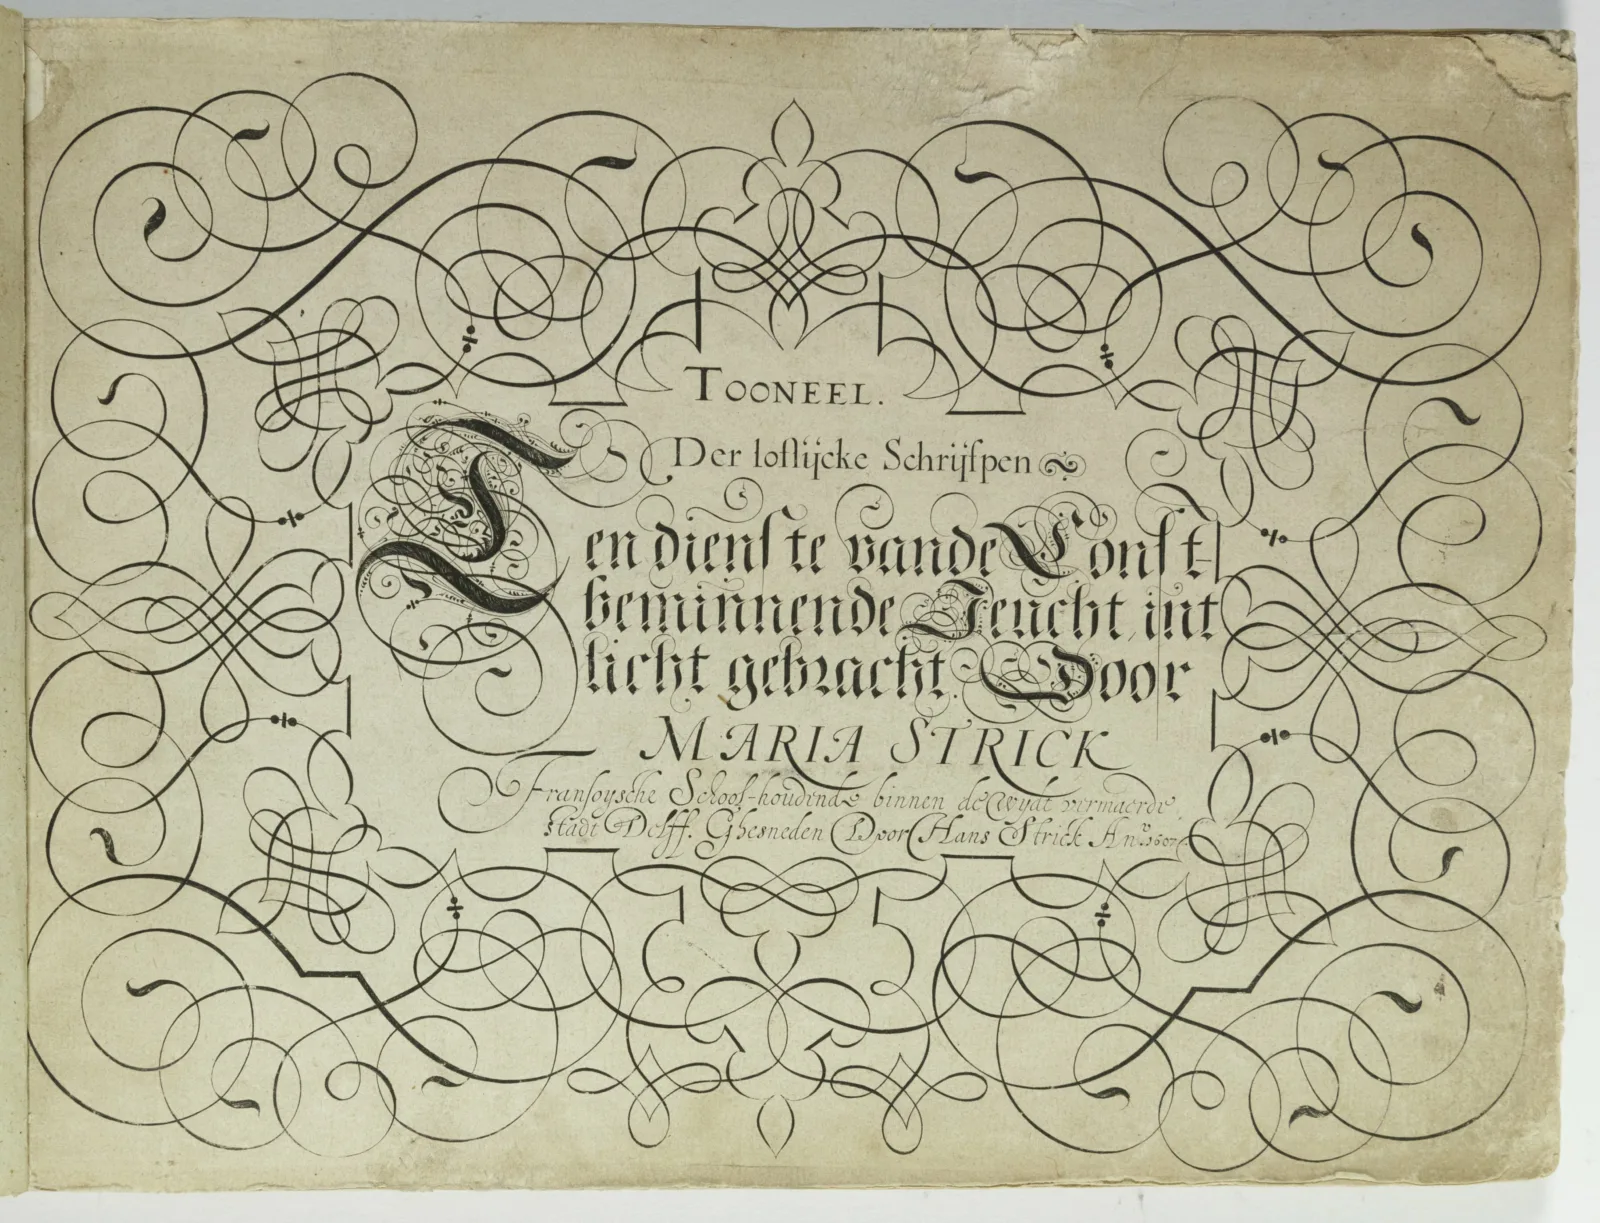 TOONEEL.
Der loflijcke Schrijfpen
Ten dienste vande Const-
beminnende Jeucht, int
licht gebracht. Door
MARIA STRICK
Fransoysche School-houdende binnen de wydt vermaerde
stadt Delff. Ghesneden Door Hans Strick An.º 1607